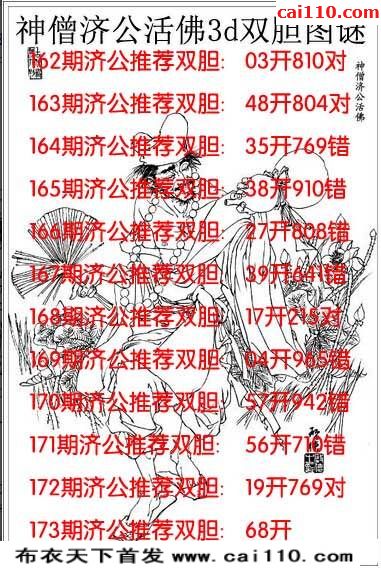 cai110.com
神僧济公活佛3d双胆图谜
神僧济公活佛
162期济公推荐双胆: 03开810对
163期济公推荐双胆: 48开804对
164期济公推荐双胆: 35开769错
165期济公推荐双胆: 38开910错
166期济公推荐双胆: 27开808错
167期济公推荐双胆: 39开641错
168期济公推荐双胆: 17开215对
169期济公推荐双胆: 04开965错
170期济公推荐双胆: 57开942错
171期济公推荐双胆: 56开710错
172期济公推荐双胆: 19开769对
173期济公推荐双胆: 68开
布衣天下首发 www.cai110.com